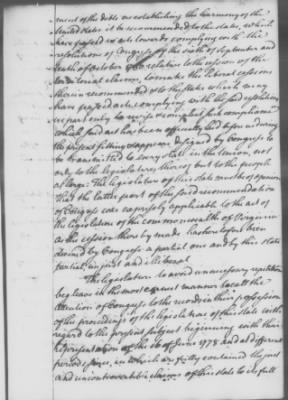 ment of the debts as establishing the harmony of the
United States it is recommended to the States, which
have passed no acts towards complying with the
resolutions of Congress of the sixth of September and
tenth of October 1780 relative to the cession of the
territorial claims, to make the liberal cessions
therein recommended & to the States which may
have passed acts complying with the said resolutions
in part only to revise & complete such compliance
which said act has been officially laid before us during
the present sitting & appears designed by Congress to
be transmitted to every State in the Union, not
only to the legislatures thereof but to the people
at large. The legislature of this State must be of opinion
that the latter part of the said recommendation
of Congress was expressly applicable to the act of
the legislature of the commonwealth of Virginia
as the cession thereby made has heretofore been
deemed by Congress a partial one and by this State
partial, unjust and illiberal.
The legislature to avoid unnecessary repetition
beg leave in the most earnest manner to call the
attention of Congress to the records in their possession
of the proceedings of the legislature of this State with
regard to the present subject beginning with their
representation of the of June 1778 and at different
periods since, in which are fully contained the just
and uncontrovertible claims of this State to its full